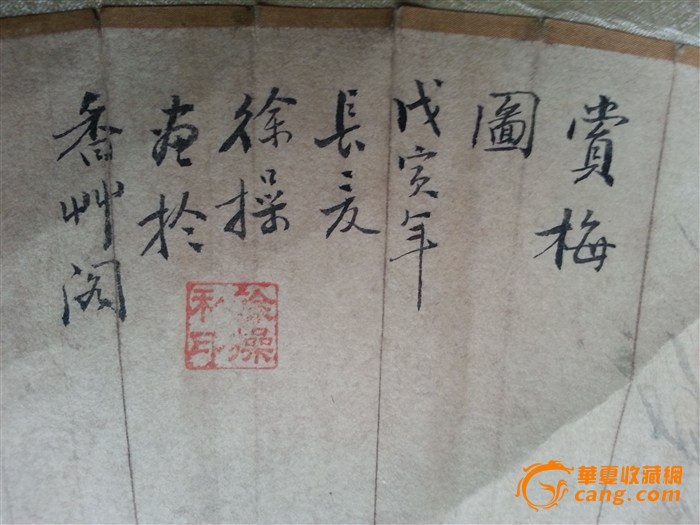 賞梅
圖
戊寅年
長夏
徐操
畫於
香艸閣
徐操
私印
華夏收藏網
cang.com